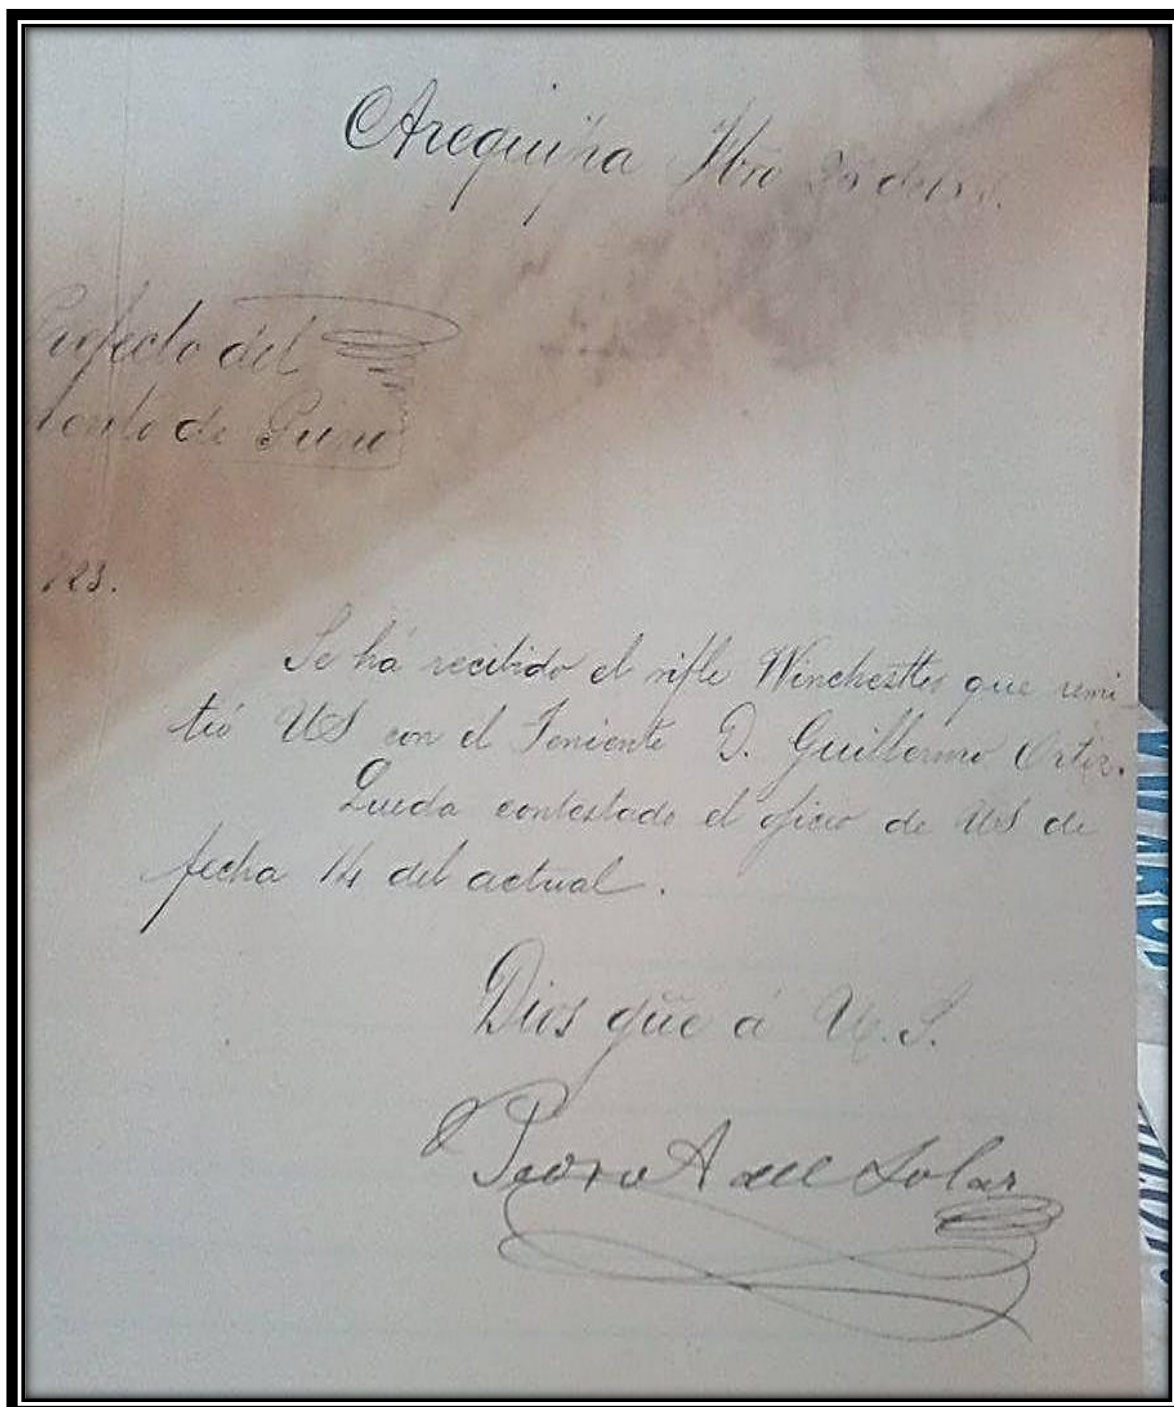 Arequipa
Prefecto del
de Puno
123.
Se há recibido el rifle Winchestter que remi-
tió US con el Teniente D. Guillermo Ortiz.
Queda contestado el oficio de US de
fecha 14 del actual.
Dios güe á U.S.
Pedro A del Solar